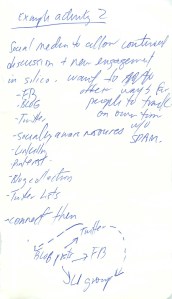 Example activity 2
Social media to allow continued
discussion + new engagement
in silico. want to
- FB other ways for
- BLOG people to track
- Twitter on own time
- Socially aware resources w/o
- LinkedIn SPAM.
- Pinterest
- Blog collection
- Twitter Lists
- connect them
Twitter
Blog posts → FB
LI group